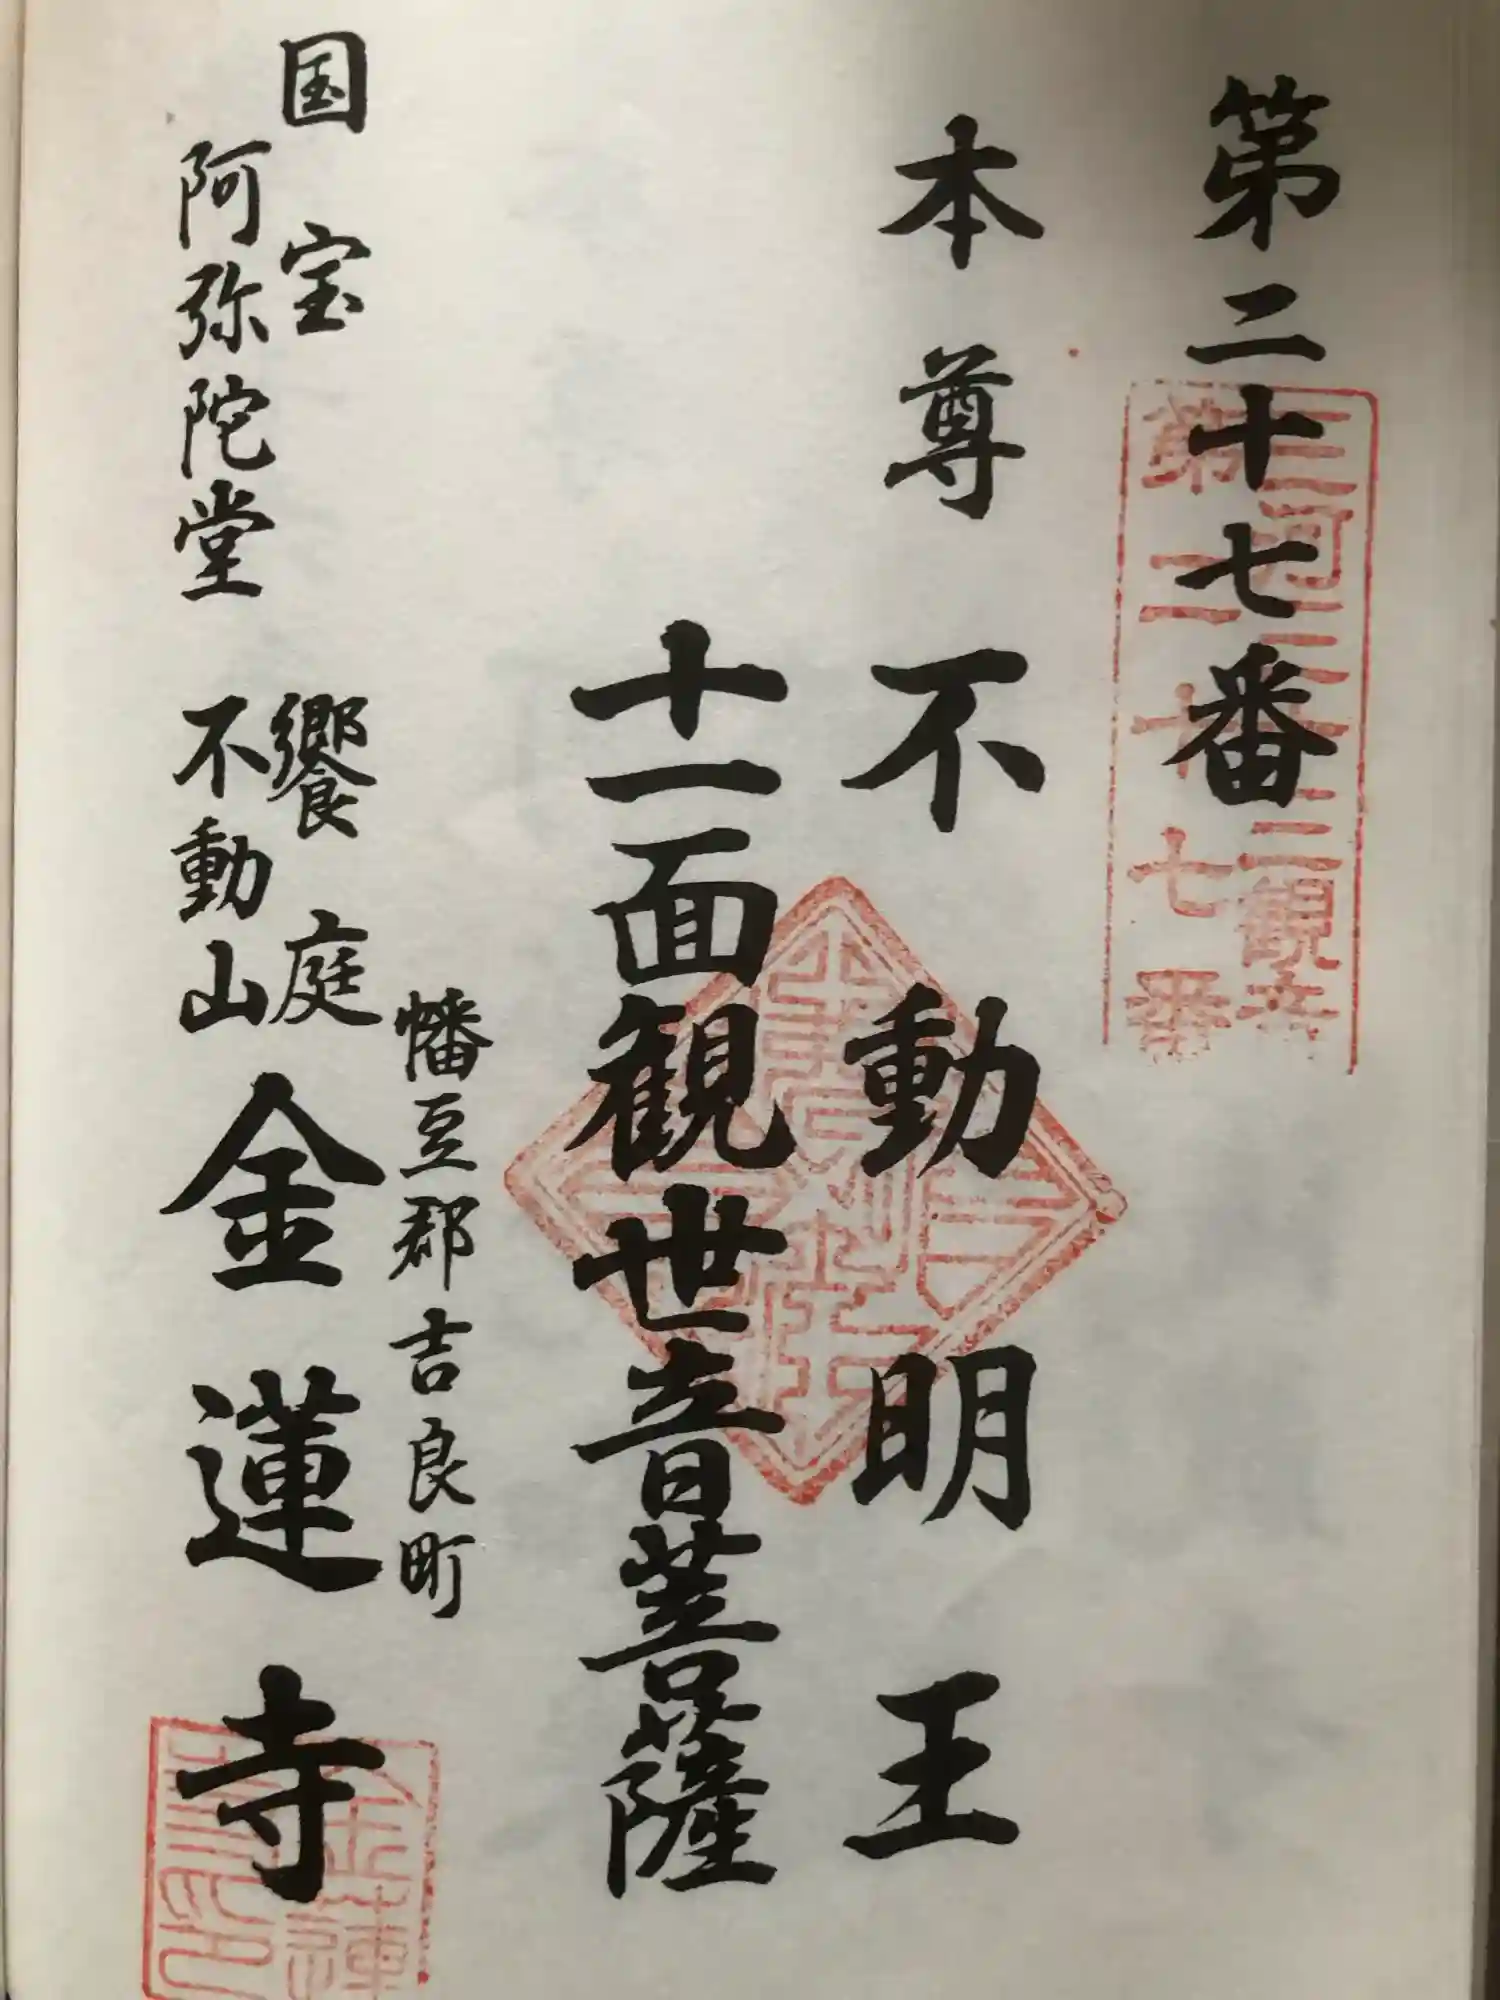 第二十七番
三河三十三観音
第二十七番
本尊不動明王
十一面観世音菩薩
幡豆郡吉良町
国宝
饗庭
阿弥陀堂
不動山
金蓮寺
金蓮
寺印